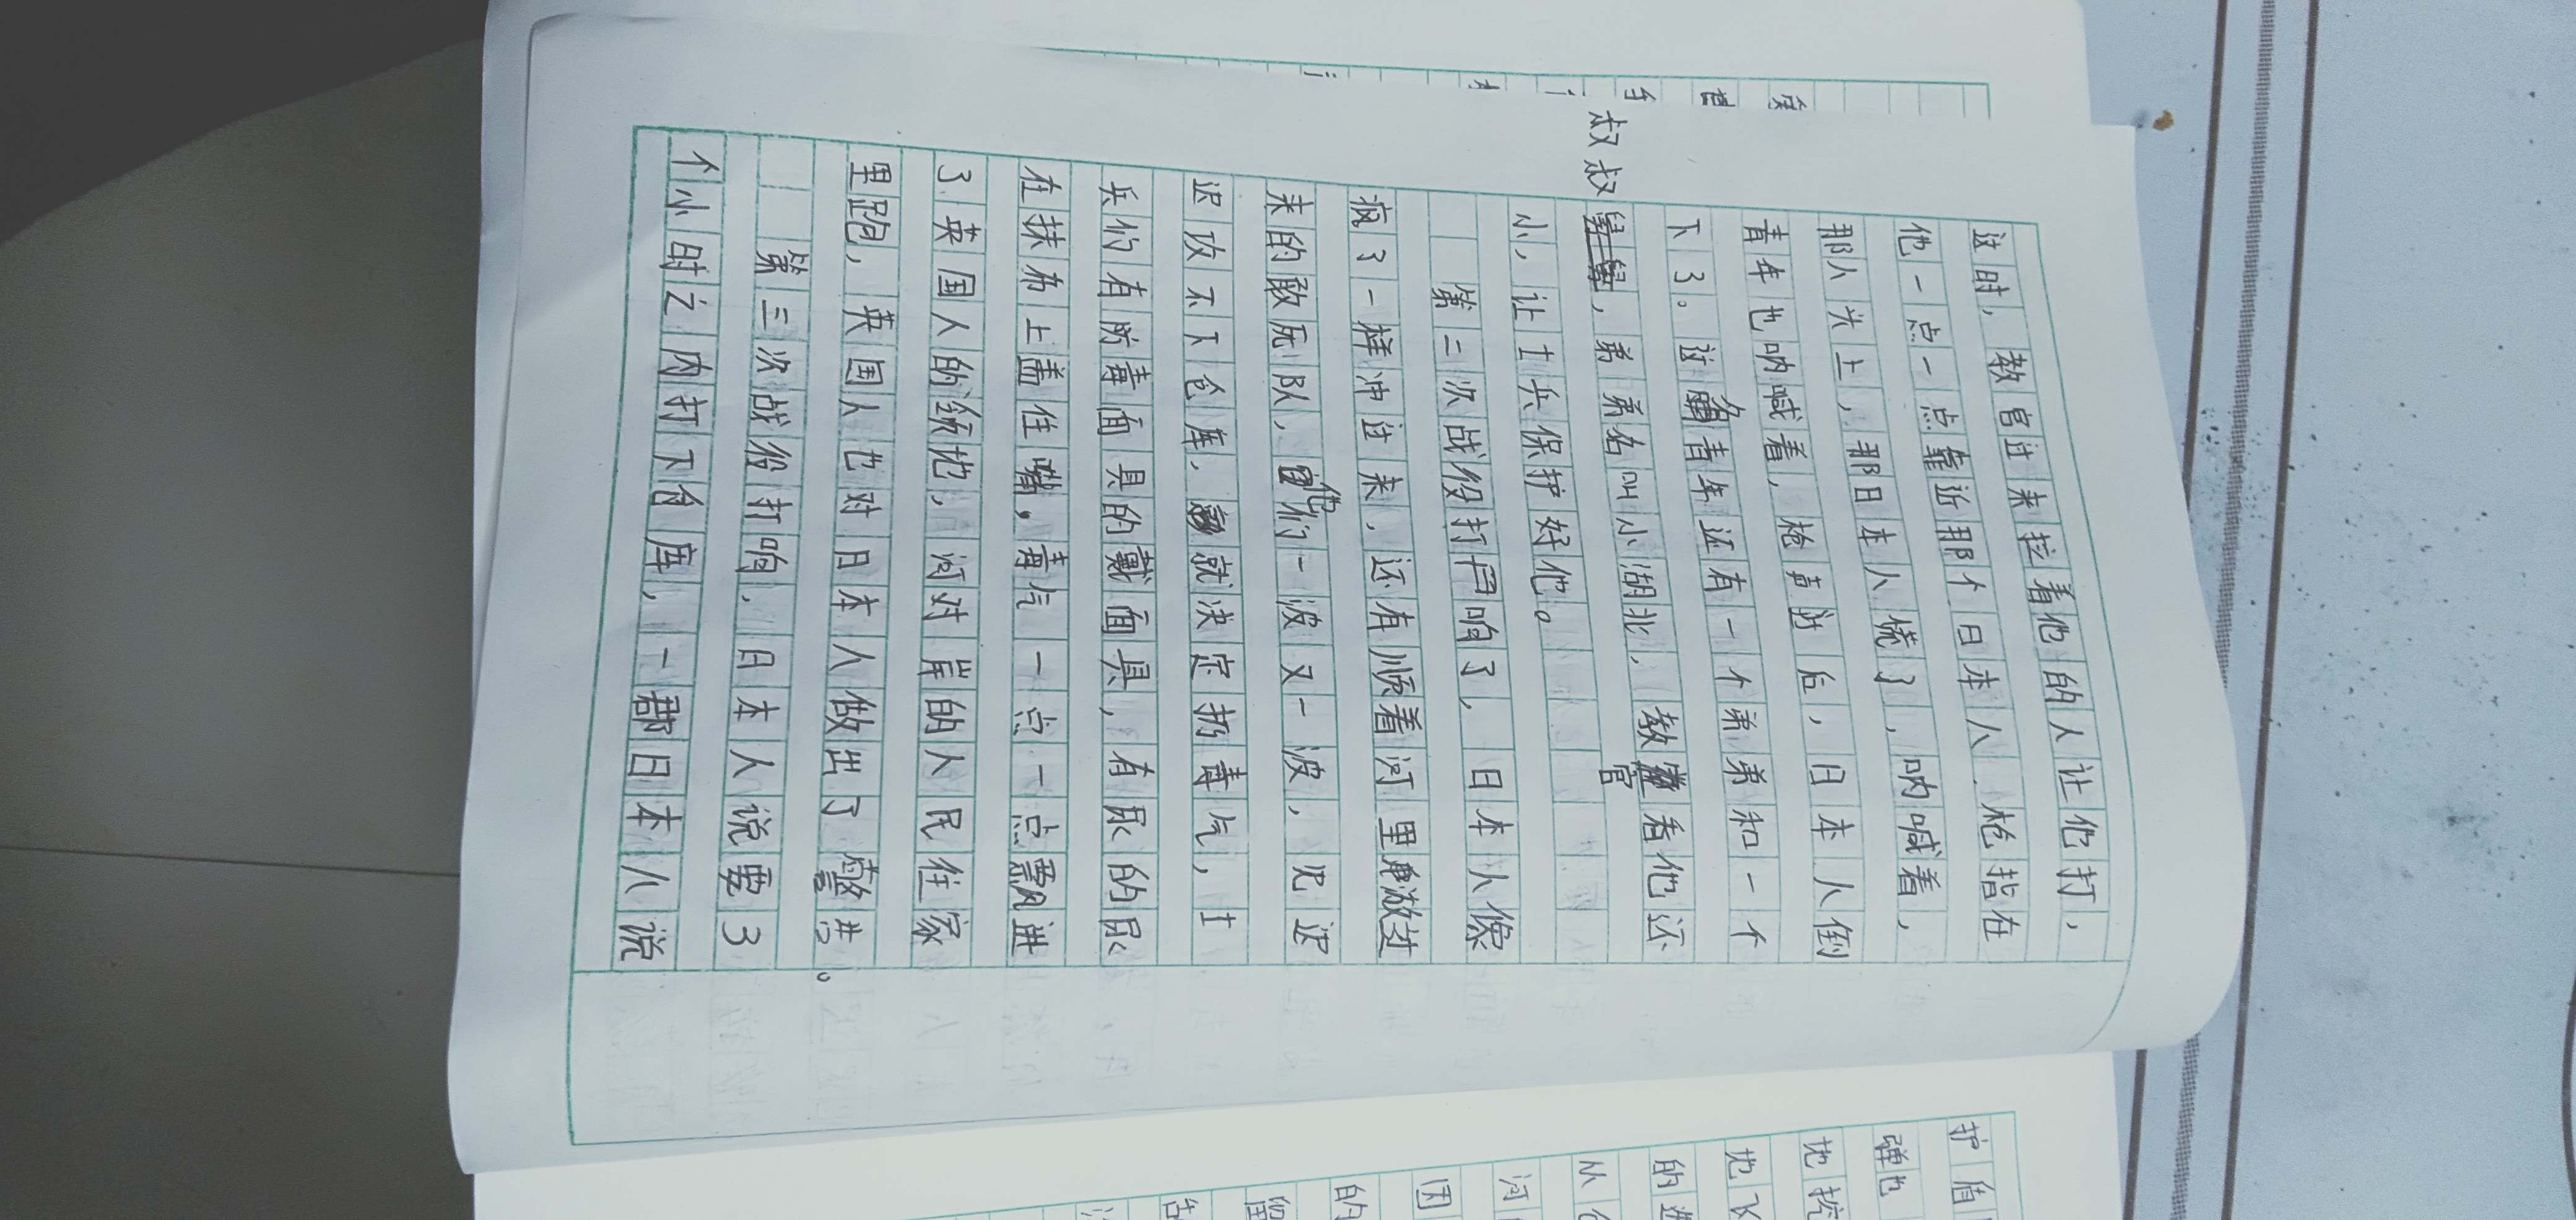 这时，教官过来拉着他的人让他打，
他一点一点靠近那个日本人.枪指在
那人头上，那日本人慌了，呐喊着，
青年也呐喊着，枪声过后，日本人倒
下了。这名青年还有一个弟弟和一个
叔叔，弟弟名叫小湖北，教官看他还
小，让士兵保护好他。
第二次战役打响了，日本人像
疯了一样冲过来，还有顺着河里游进
来的敢死队，他们一波又一波，见迟
迟攻不下仓库，就决定扔毒气，士
兵们有防毒面具的戴面具，有尿的尿
在抹布上盖住嘴，毒气一点一点飘进
了英国人的领地，河对岸的人民往家
里跑，英国人也对日本人做出了警告。
第三次战役打响，日本人说要3
个小时之内打下仓库，一群日本人说
护值
弹也
地扰
地飞
的进
从仓
河
团
的
留
告